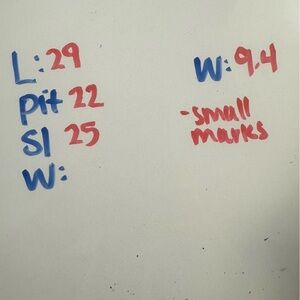 L: 29
Pit 22
Sl 25
W:
W: 9.4
-small
marks